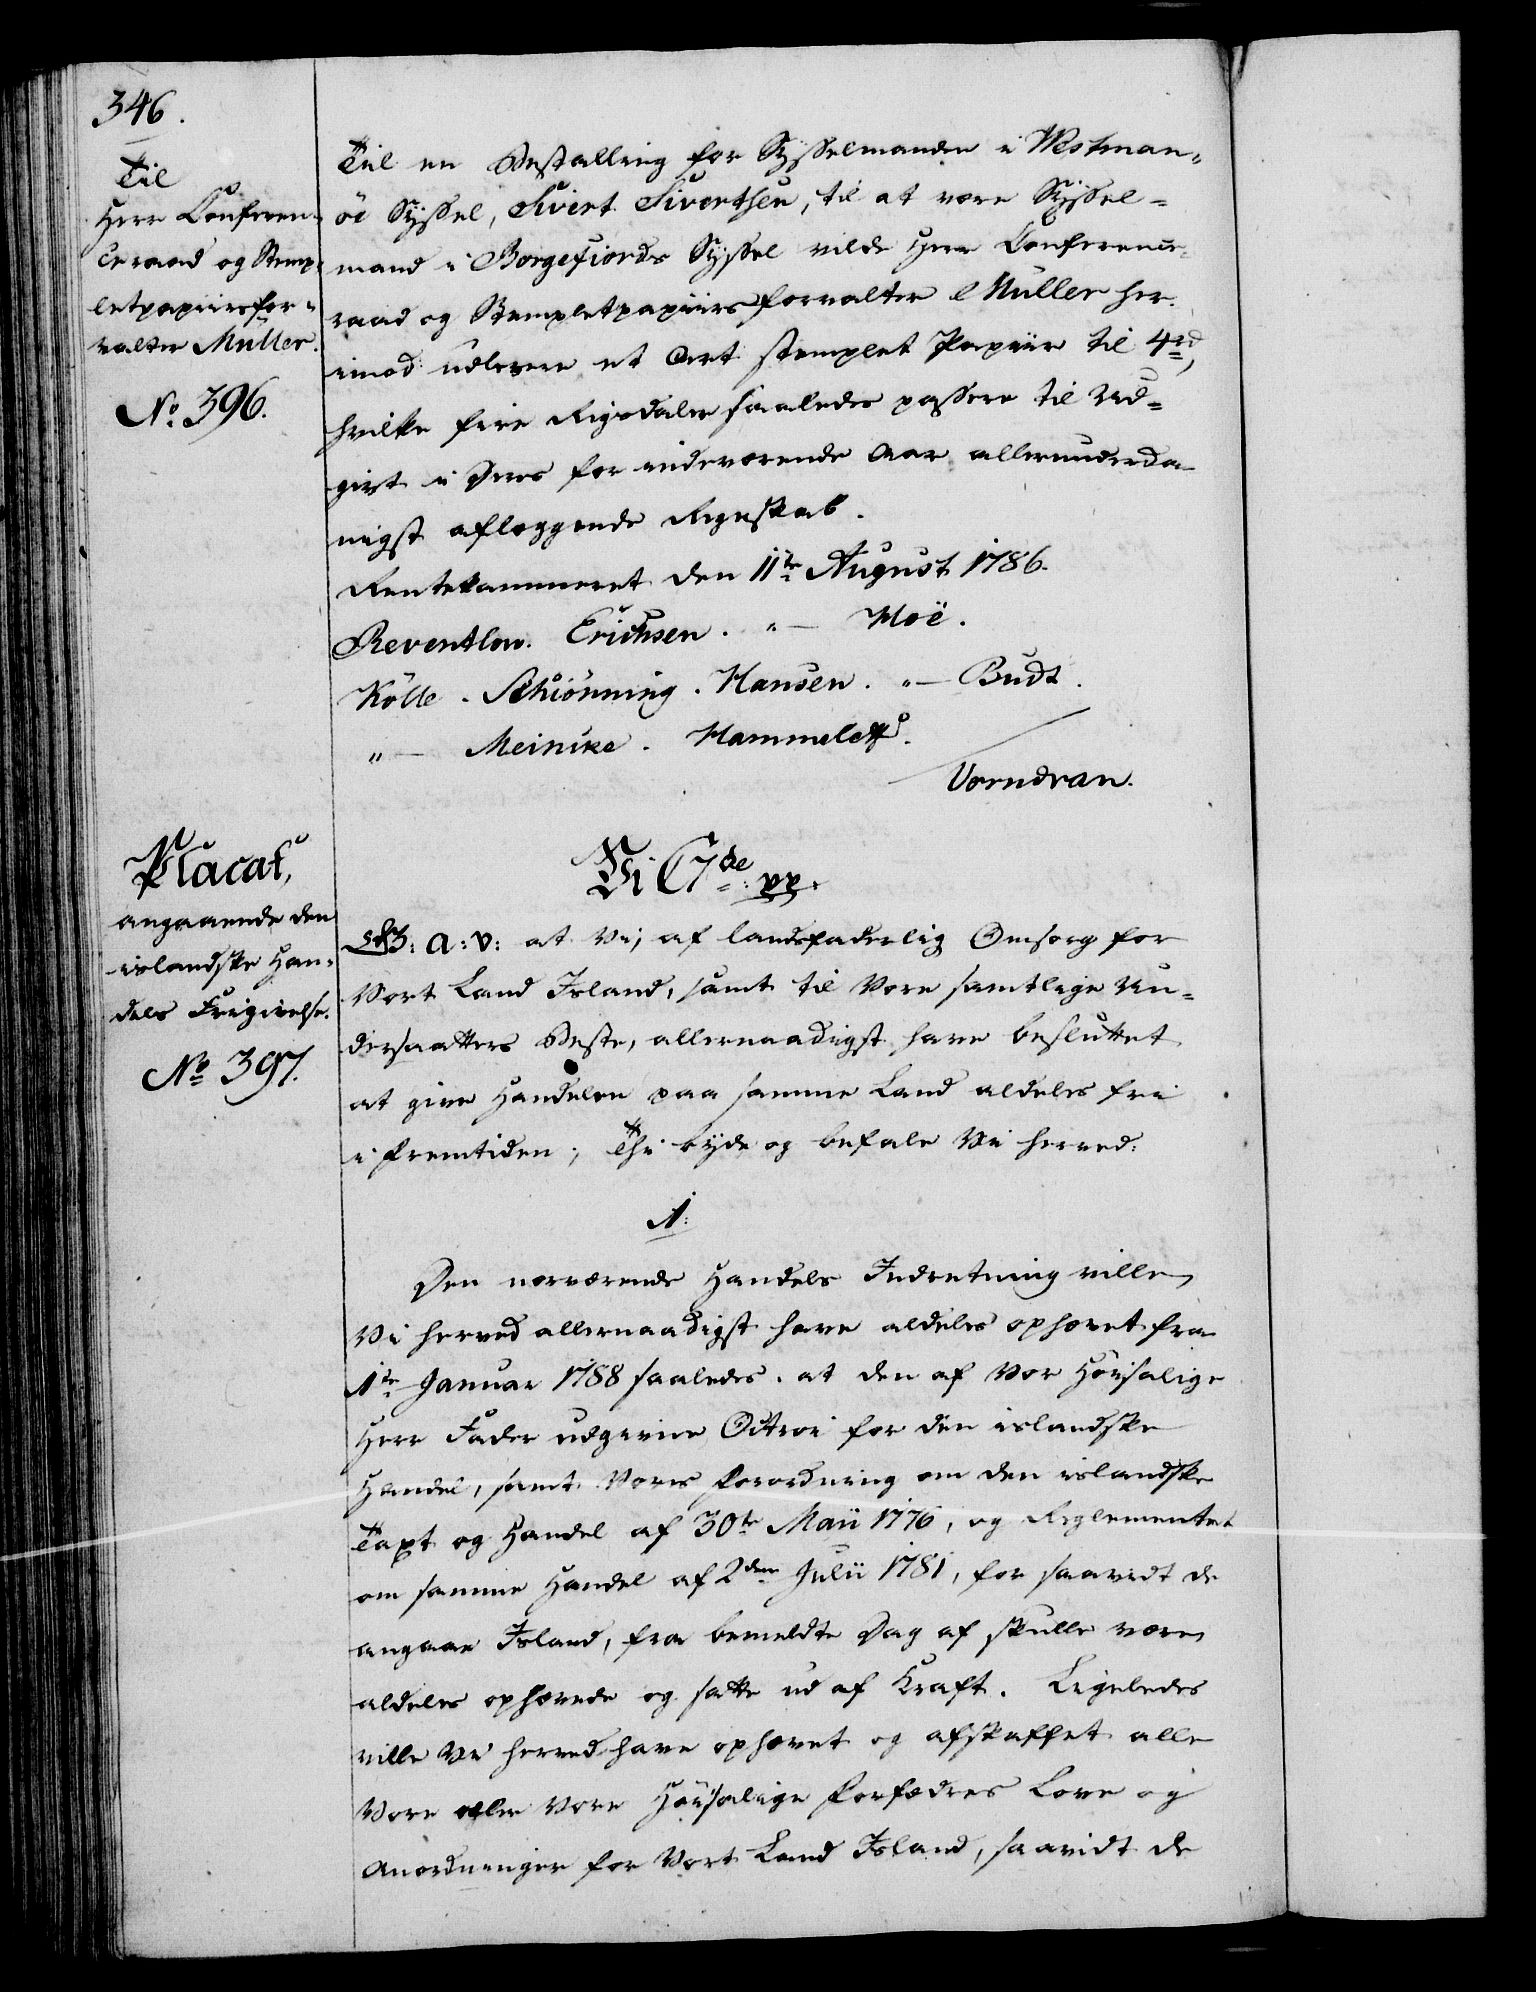 346.
Til
Herr Conferen-
ceraad og Stemp-
letpapiirsfor-
valter Müller.
No. 396.
Til en Bestalling for Sysselmanden i Westman-
öe Syssel, Sivert Sivertsen, til at være Syssel-
mand i Borgefiords Syssel vilde Herr Conference-
raad og Stempletpapiirsforvalter Müller her-
imod udlevere et Ark stemplet Papiir til 4rd,
hvilke fire Rigsdaler saaledes passere til Ud-
givt i Deres for indeværende Aar allerunderda-
nigst aflæggende Regnskab.
Rentekammeret den 11te August 1786.
Reventlow. Erichsen. " — Moë.
Kölle. Schiönning. Hansen. " — Budt.
" — Meinike. Hammeleff.
Vorndran.
Placat,
angaaende den
islandske Han-
dels Frigivelse.
No. 397.
Vi C7de pp.
G: A: V: at Vi, af landsfaderlig Omsorg for
Vort Land Island, samt til Vore samtlige Un-
dersaatters Beste, allernaadigst have besluttet
at give Handelen paa samme Land aldeles fri
i Fremtiden; Thi byde og befale Vi herved:
1.
Den nærværende Handels Indretning ville
Vi herved allernaadigst have aldeles ophævet fra
1te Januar 1788 saaledes, at den af Vor Höisalige
Herr Fader udgivne Octroi for den islandske
Handel, samt Vores Forordning om den islandske
Taxt og Handel af 30te Maii 1776, og Reglementet
om samme Handel af 2den Julii 1781, for saavidt de
angaae Island, fra bemeldte Dag af skulle være
aldeles ophævede og satte ud af Kraft. Ligeledes
ville Vi herved have ophævet og afskaffet alle
Vore eller Vore Höisalige Forfædres Love og
Anordninger for Vort Land Island, saavidt de